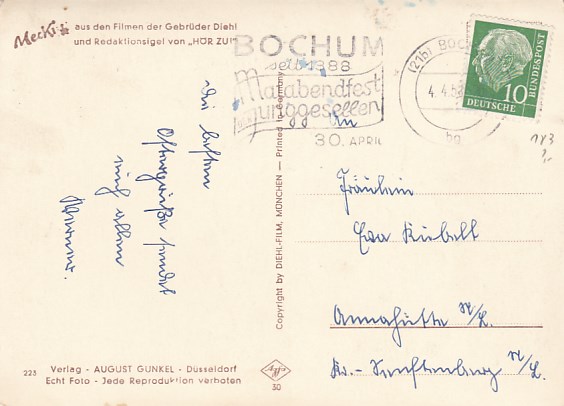 Mecki aus den Filmen der Gebrüder Diehl
und Redaktionsigel von „HÖR ZU!"
BOCHUM
seit 1388
Maiabendfest
Junggesellen
30. APRIL
(21b) BOCHUM
4.4.58
bg
DEUTSCHE
BUNDESPOST
10
183
Die besten
Ostergrüße sendet
euch allen
Werner.
An
Fräulein
Eva Kubelt
Annahütte N/L.
Kr.- Senftenberg N/L.
Copyright by DIEHL-FILM, MÜNCHEN — Printed in Germany
223
Verlag - AUGUST GUNKEL - Düsseldorf
Echt Foto - Jede Reproduktion verboten
Agfa
30